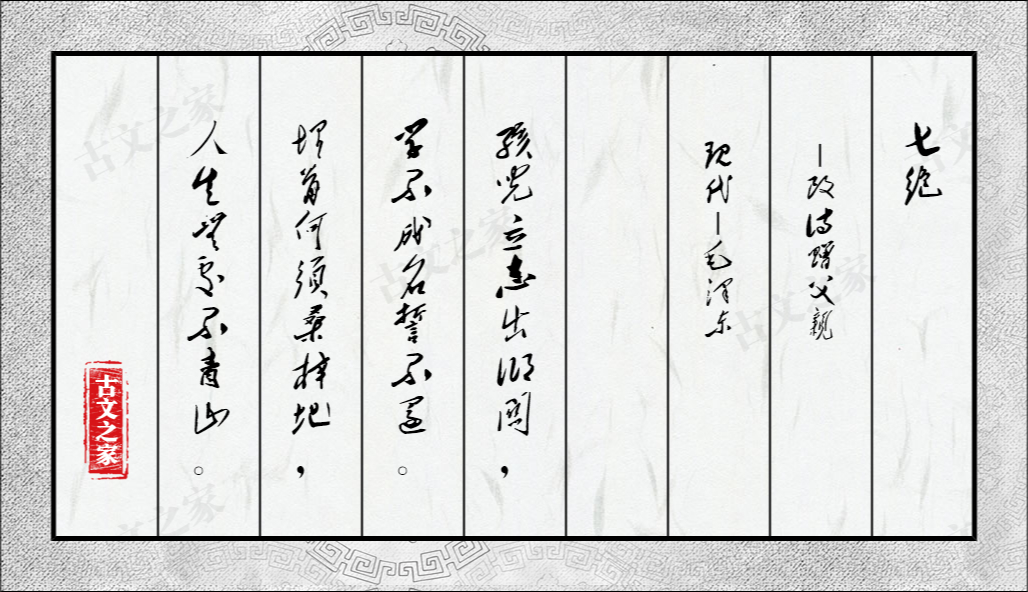 七绝
—改诗赠父親
现代—毛泽东
孩児立志出鄉關，
学不成名誓不還。
埋骨何須桑梓地，
人生無處不青山。
古文之家